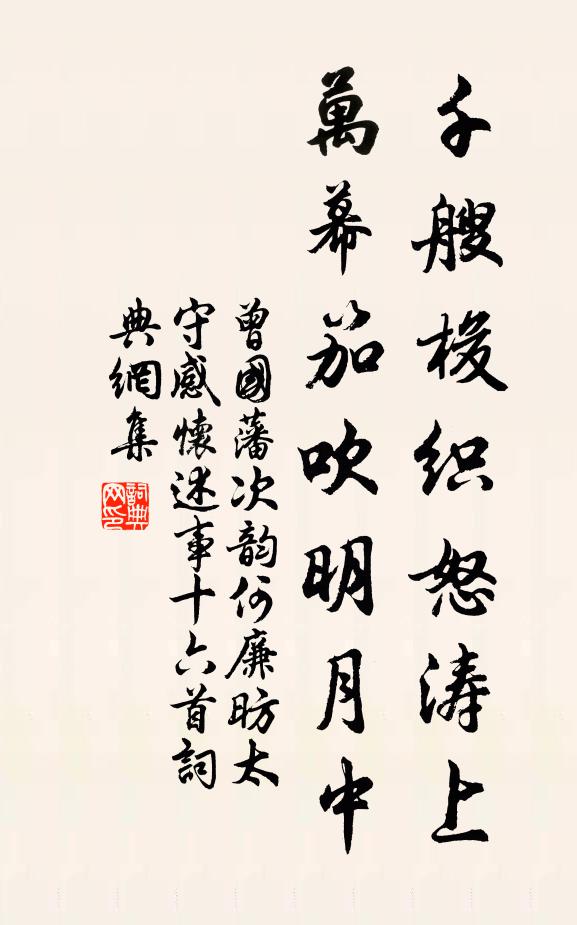 千艘梭织怒涛上
萬幕笳吹明月中
曾國藩次韵何廉昉太
守感懷述事十六首詞
典網集
詞典网印